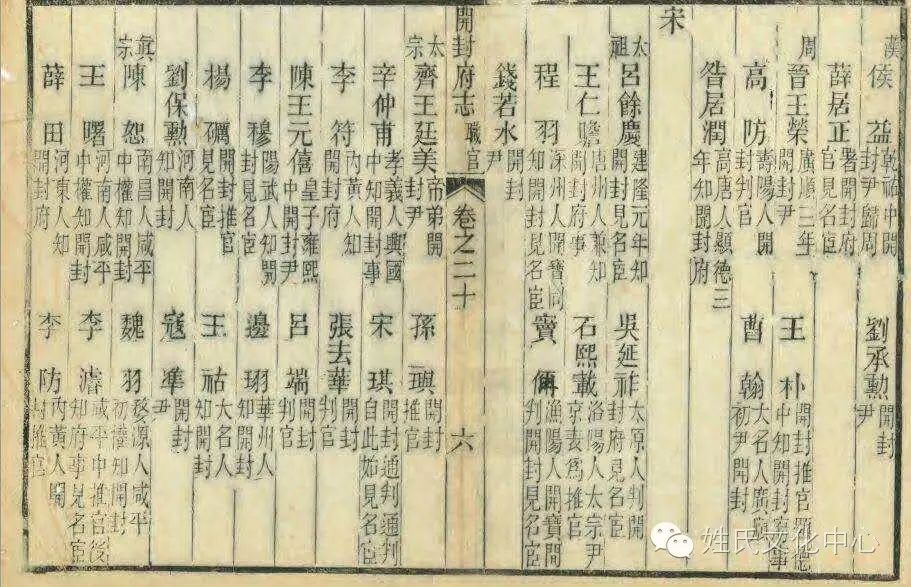 漢
侯益 乾祐中開封尹歸周
劉承勲 開封尹
薛居正 署開封府官見名臣
周
晉王榮 廣順三年開封尹
王朴 開封推官顯德中知開封府事
高防 壽陽人開封判官
曹翰 大名人廣順初尹開封
昝居潤 高唐人顯德三年知開封府
宋
太祖
呂餘慶 建隆元年知開封見名臣
吳延祚 太原人判開封府見名臣
王仁瞻 唐州人兼知開封府事
石熙載 洛陽人太宗尹京表爲推官
程羽 深州人開寶間知開封見名臣
竇偁 漁陽人開寶間判開封見名臣
錢若水 開封尹
開封府志 職官 卷之二十 六
太宗
齊王廷美 帝弟開封尹
孫璵 開封推官
辛仲甫 孝義人興國中知開封事
宋琪 開封通判通判自此始見名臣
李符 內黃人知開封府
張去華 開封判官
陳王元僖 皇子雍熙中開封尹
呂端 開封判官
李穆 陽武人知開封見名臣
邊珝 華州人知開封
楊礪 開封推官見名臣
王祐 大名人知開封
劉保勲 河南人知開封
寇準 開封尹
眞宗
陳恕 南昌人咸平中權知開封
魏羽 婺源人咸平初權知開封
王曙 河南人咸平中權知開封
李濬 咸平中推官後知府事見名臣
薛田 河東人知開封府
李防 內黃人開封推官
姓氏文化中心